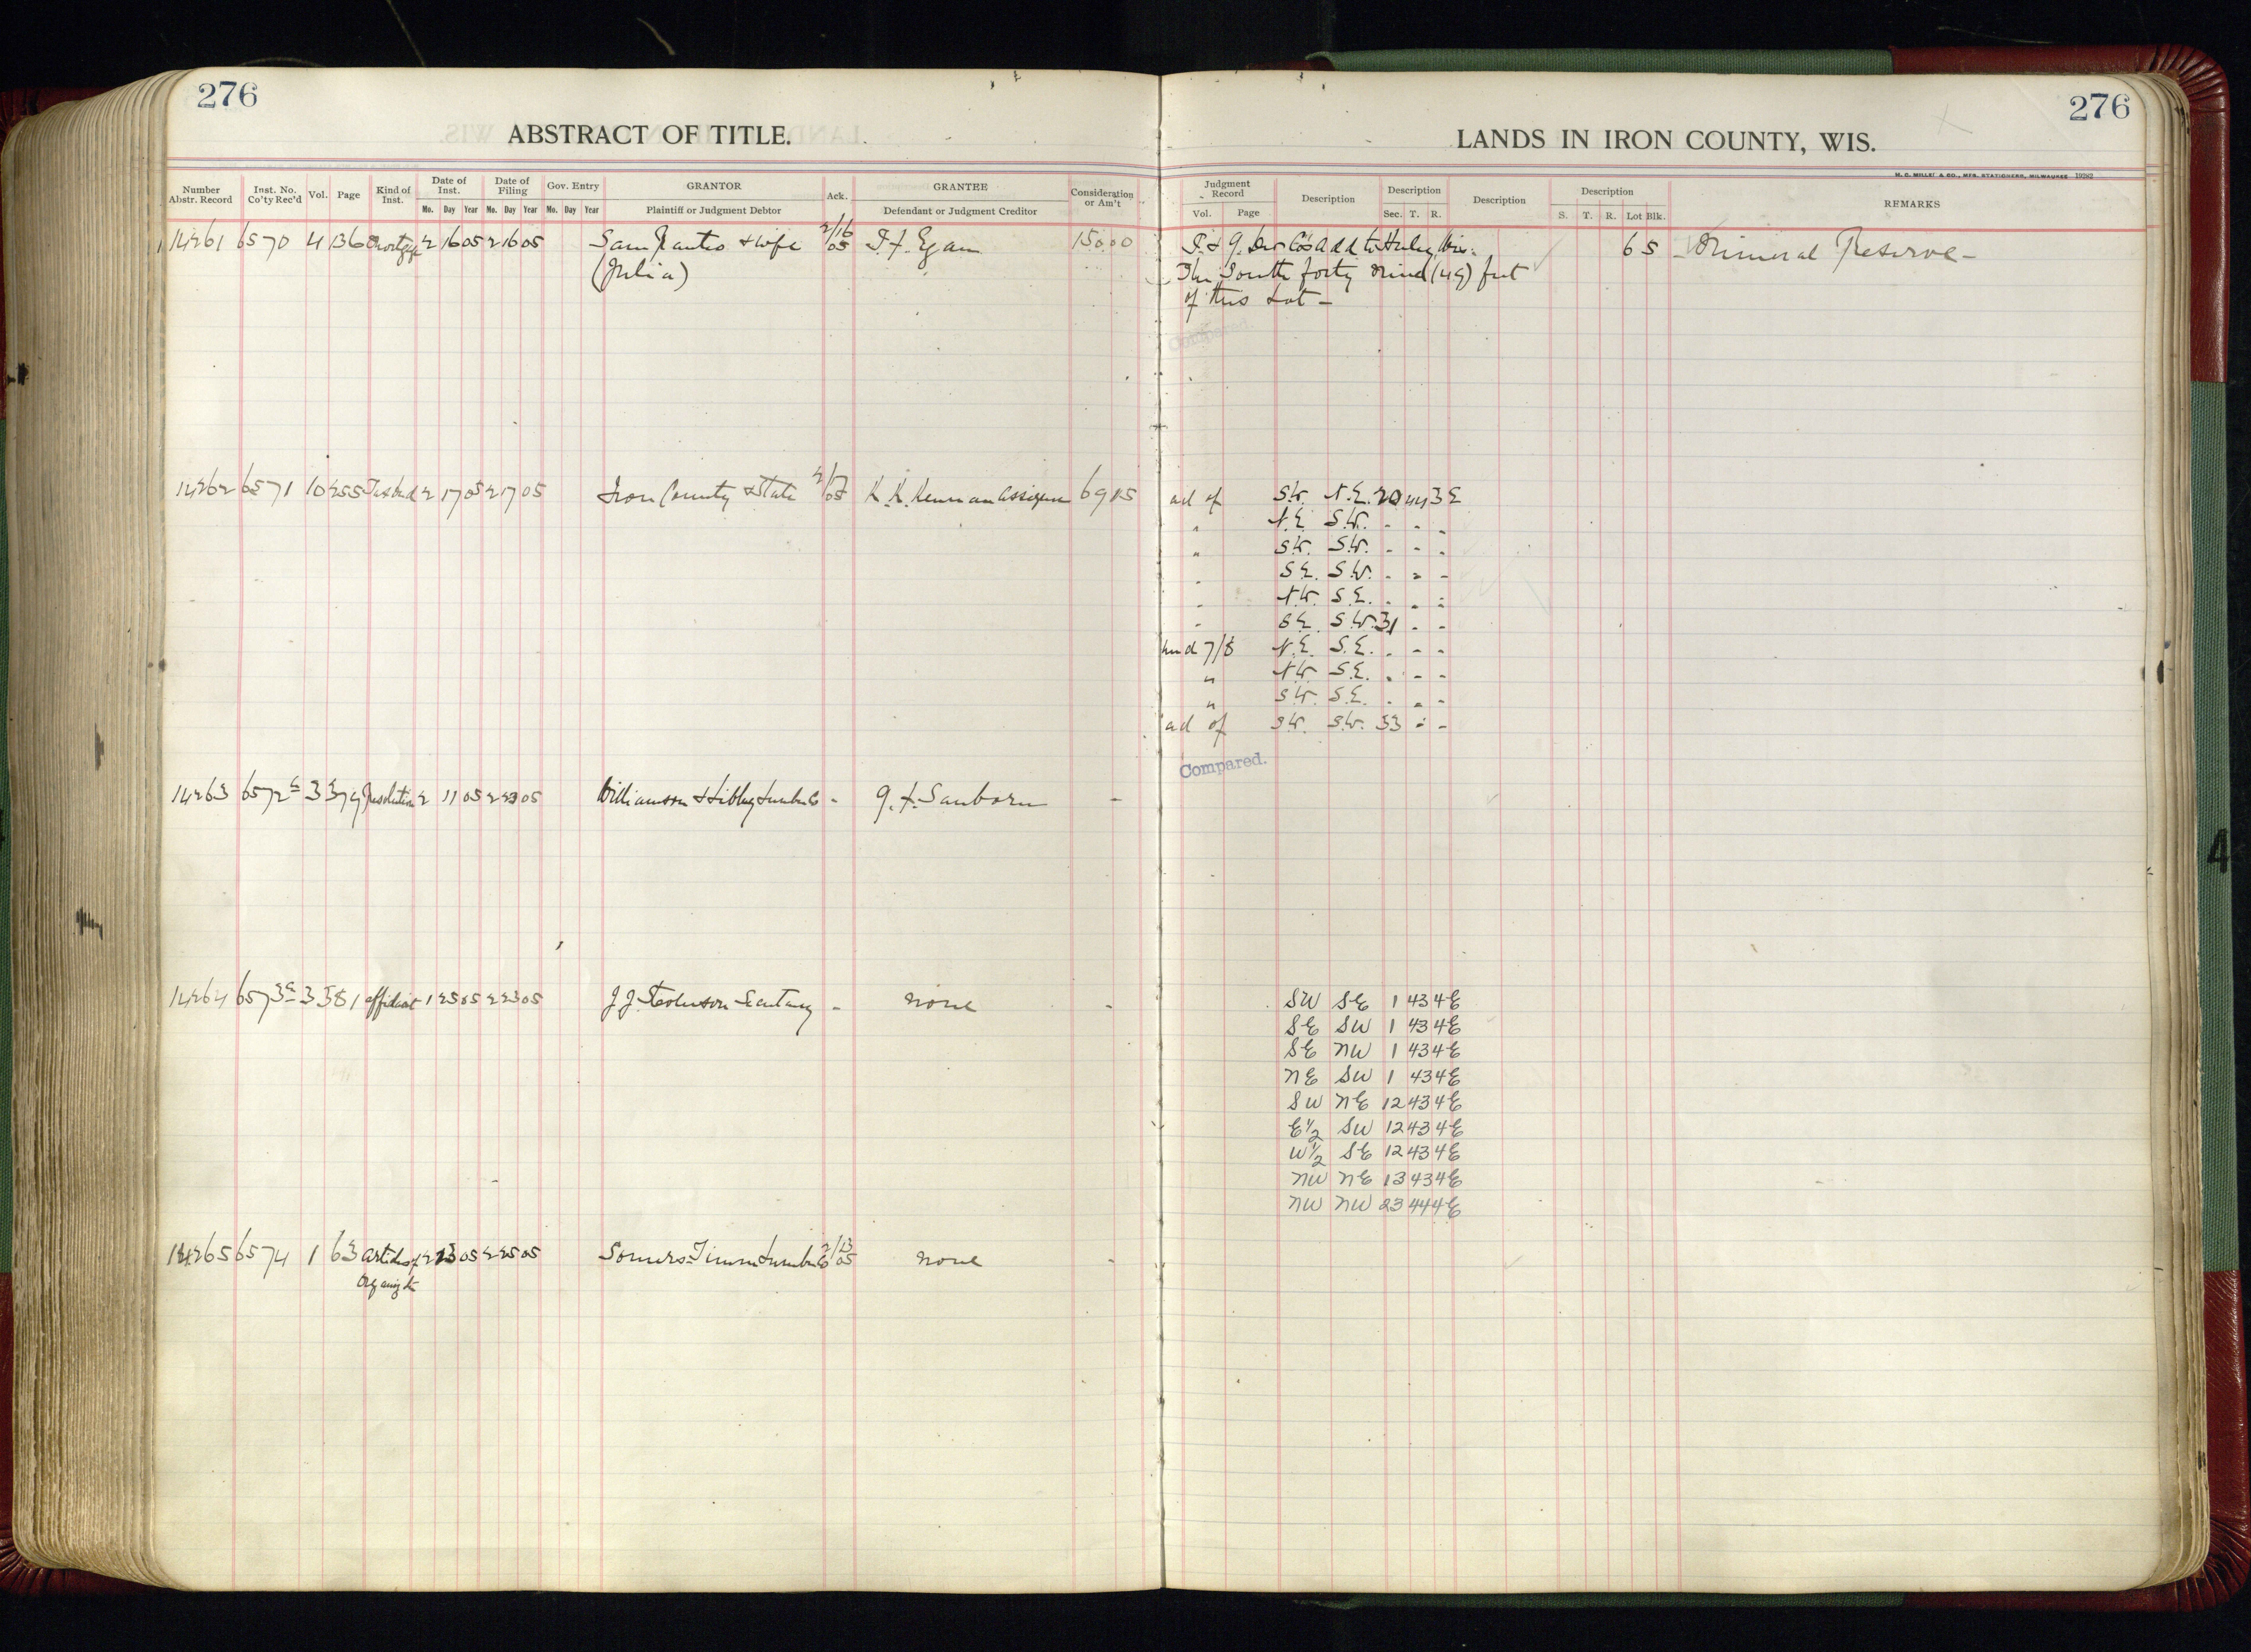 276
276
ABSTRACT OF TITLE.
LANDS IN IRON COUNTY, WIS.
H. C. MILLER & CO., MFG. STATIONERS, MILWAUKEE 19282
Number Abstr. Record Inst. No. Co'ty Rec'd Vol. Page Kind of Inst. Date of Inst. Mo. Day Year Date of Filing Mo. Day Year Gov. Entry Mo. Day Year GRANTOR Plaintiff or Judgment Debtor Ack. GRANTEE Defendant or Judgment Creditor Consideration or Am't
Judgment Record Vol. Page Description Description Sec. T. R. Description Description S. T. R. Lot Blk. REMARKS
14261 6570 4 136 Mortgage 2 16 05 2 16 05 Sam & wife 2/16 05 Egan 150.00 Add to Hurley Wis. 6 5 Mineral Reserve -
(Julia) The South forty nine (49) feet
of this Lot -
Compared.
14262 6571 10 255 Tax deed 2 17 05 2 17 05 Iron County & State 2/17 05 K. K. Kennan Assignee 69 15 all of S.W. N.E. 20 44 3 E
" N.E. S.W. " " "
" S.W. S.W. " " "
" S.E. S.W. " " "
" N.W. S.E. " " "
" S.E. S.W. 31 " "
und 7/8 N.E. S.E. " " "
" N.W. S.E. " " "
" S.W. S.E. " " "
all of S.W. S.W. 33 " "
Compared.
14263 6572 3 379 Resolution 2 11 05 2 23 05 Williamson & Libbey Lumber Co - Sanborn -
14264 6573 3 381 affidavit 1 25 05 2 23 05 J J Stevenson Secretary - none - SW SE 1 43 4E
SE SW 1 43 4E
SE NW 1 43 4E
NE SW 1 43 4E
SW NE 12 43 4E
E½ SW 12 43 4E
W½ SE 12 43 4E
NW NE 13 43 4E
NW NW 23 44 4E
14265 6574 1 63 Articles of 2 13 05 2 25 05 Somers Timm Lumber Co 2/13 05 none -